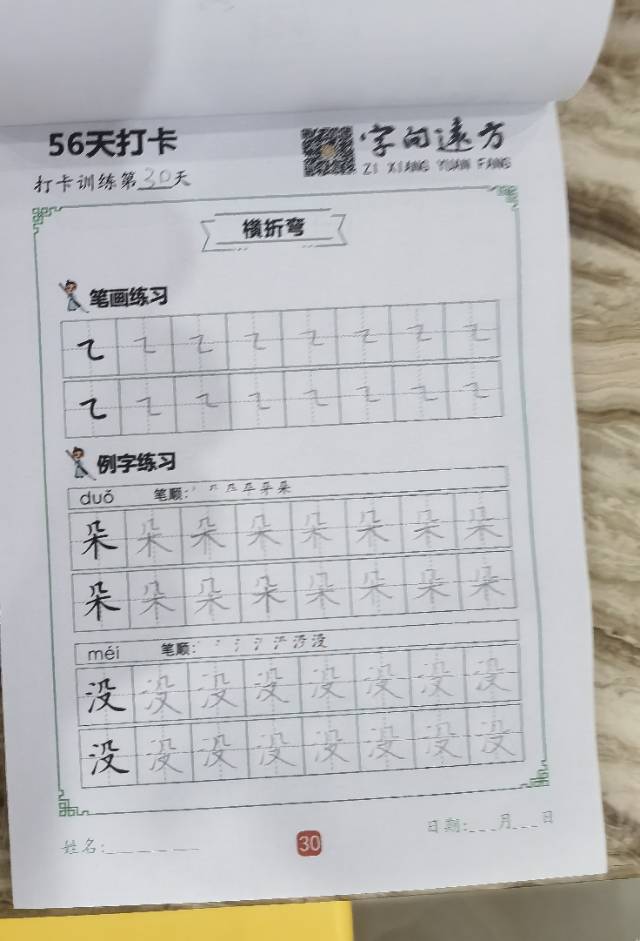 56天打卡
字向远方
ZI XIANG YUAN FANG
打卡训练第30天
横折弯
笔画练习
例字练习
duǒ 笔顺:
朵朵朵朵朵朵朵朵
朵朵朵朵朵朵朵朵
méi 笔顺:
没没没没没没没没
没没没没没没没没
姓名:
30
日期:___月___日